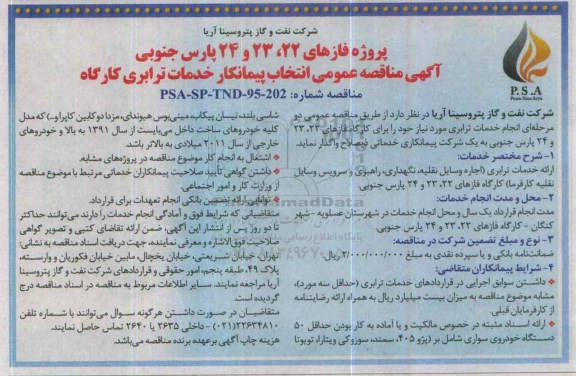 شرکت نفت و گاز پتروسینا آریا
پروژه فازهای ۲۲، ۲۳ و ۲۴ پارس جنوبی
آگهی مناقصه عمومی انتخاب پیمانکار خدمات ترابری کارگاه
مناقصه شماره: PSA-SP-TND-95-202
P.S.A
Petro Sina Arya
شرکت نفت و گاز پتروسینا آریا در نظر دارد از طریق مناقصه عمومی دو
مرحله‌ای انجام خدمات ترابری مورد نیاز خود را برای کارگاه فازهای ۲۲، ۲۳
و ۲۴ پارس جنوبی به یک شرکت پیمانکاری خدماتی ذیصلاح واگذار نماید.
۱- شرح مختصر خدمات:
ارائه خدمات ترابری (اجاره وسایل نقلیه، نگهداری، راهبری و سرویس وسایل
نقلیه کارفرما) کارگاه فازهای ۲۲، ۲۳ و ۲۴ پارس جنوبی.
۲- محل و مدت انجام خدمات:
مدت انجام قرارداد یک سال و محل انجام خدمات در شهرستان عسلویه - شهر
کنگان - کارگاه فازهای ۲۲، ۲۳ و ۲۴ پارس جنوبی.
۳- نوع و مبلغ تضمین شرکت در مناقصه:
ضمانتنامه بانکی و یا سپرده نقدی به مبلغ ۲/۰۰۰/۰۰۰/۰۰۰ ریال
۴- شرایط پیمانکاران متقاضی:
* داشتن سوابق اجرایی در قراردادهای خدمات ترابری (حداقل سه مورد)،
مشابه موضوع مناقصه به میزان بیست میلیارد ریال به همراه ارائه رضایتنامه
از کارفرمایان قبلی.
* ارائه اسناد مثبته در خصوص مالکیت و یا آماده به کار بودن حداقل ۵۰
دستگاه خودروی سواری شامل بر (پژو ۴۰۵، سمند، سوزوکی ویتارا، تویوتا
شاسی بلند، نیسان پیکاپ، مینی‌بوس هیوندای، مزدا دو کابین کاپرا و...) که مدل
کلیه خودروهای ساخت داخل می‌بایست از سال ۱۳۹۱ به بالا و خودروهای
خارجی از سال ۲۰۱۱ میلادی به بالاتر باشد.
* اشتغال به انجام کار موضوع مناقصه در پروژه‌های مشابه.
* داشتن گواهی تأیید صلاحیت پیمانکاران خدماتی مرتبط با موضوع مناقصه
از وزارت کار و امور اجتماعی.
* توانایی ارائه تضمین بانکی انجام تعهدات برای قرارداد.
متقاضیانی که شرایط فوق و آمادگی انجام خدمات را دارند می‌توانند حداکثر
تا دو روز پس از انتشار این آگهی، ضمن ارائه تقاضای کتبی و تصویر گواهی
صلاحیت فوق‌الاشاره و معرفی نماینده، جهت دریافت اسناد مناقصه به نشانی:
تهران، خیابان شریعتی، خیابان یخچال، مابین خیابان فکوریان و وارسته،
پلاک ۴۹، طبقه پنجم، امور حقوقی و قراردادهای شرکت نفت و گاز پتروسینا
آریا مراجعه نمایند. سایر اطلاعات مربوط به مناقصه در اسناد مناقصه درج
گردیده است.
متقاضیان در صورت داشتن هرگونه سوال می‌توانند با شماره تلفن
۲۲۶۳۴۸۱۰ (۰۲۱) - داخلی ۲۶۳۵ یا ۲۶۴۰ تماس حاصل نمایند.
هزینه چاپ آگهی برعهده برنده مناقصه می‌باشد.